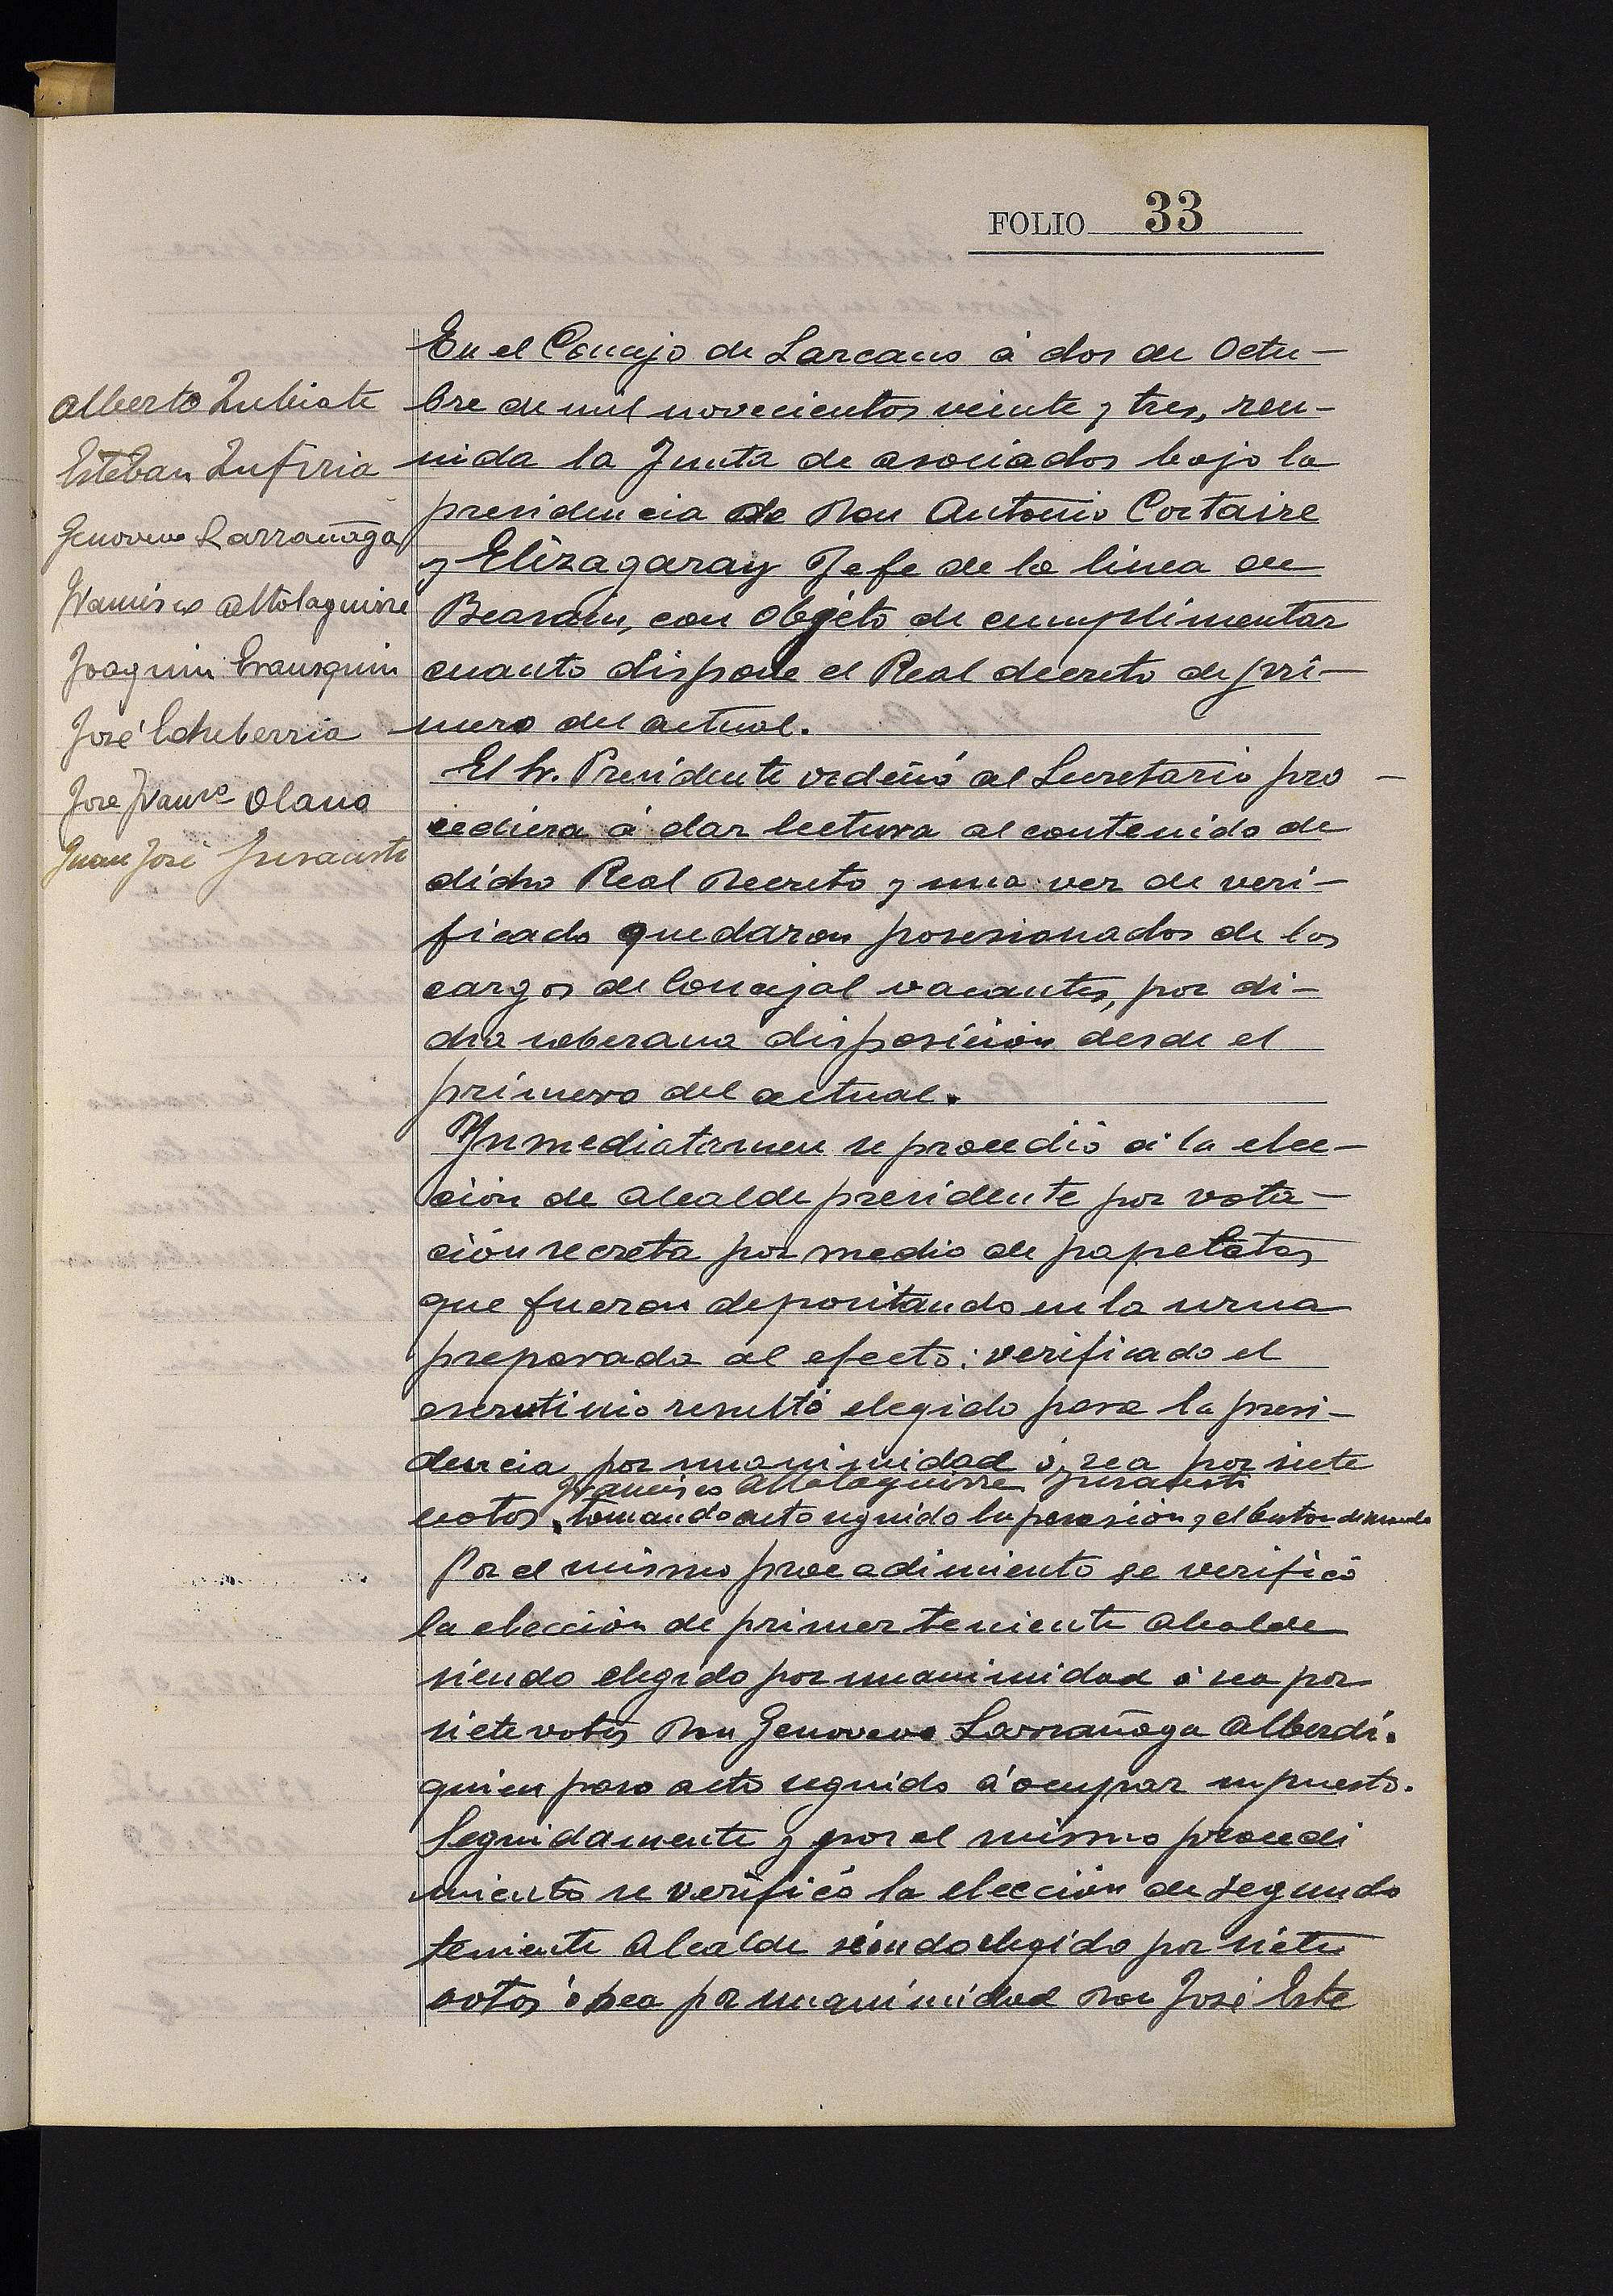 FOLIO 33
Alberto Zubiate
Esteban Zufiria
Genoveva Larrañaga
Francisco Altolaguirre
Joaquin Erausquin
José Echeberria
Jose Franco Olano
Juan José Insausti
En el Concejo de Lazcano á dos de Octu-
bre de mil novecientos veinte y tres, reu-
nida la Junta de asociados bajo la
presidencia de Don Antonio Cortaire
y Elizagaray Jefe de la linea de
Beasain, con objeto de cumplimentar
cuanto dispone el Real decreto de pri-
mero del actual.
El Sr. Presidente ordenó al Secretario pro-
cediera á dar lectura al contenido de
dicho Real Decreto y una vez de veri-
ficado quedaron posesionados de los
cargos de Concejal vacantes, por di-
cha soberana disposición desde el
primero del actual.
Inmediatamen se procedió á la elec-
ción de Alcalde presidente por vota-
ción secreta por medio de papeletas
que fueron depositando en la urna
preparada al efecto: verificado el
escrutinio resultó elegido para la presi-
dencia por unanimidad ó sea por siete
Francisco Altolaguirre Insausti
votos, tomando acto seguido la posesión y el baston de mando
Por el mismo procedimiento se verificó
la elección de primer teniente Alcalde
siendo elegido por unanimidad ó sea por
siete votos Don Genoveva Larrañaga Alberdi.
quien paso acto seguido á ocupar su puesto.
Seguidamente y por el mismo procedi
miento se verificó la elección de segundo
teniente Alcalde siendo elegido por siete
votos ó sea por unanimidad Don José Este